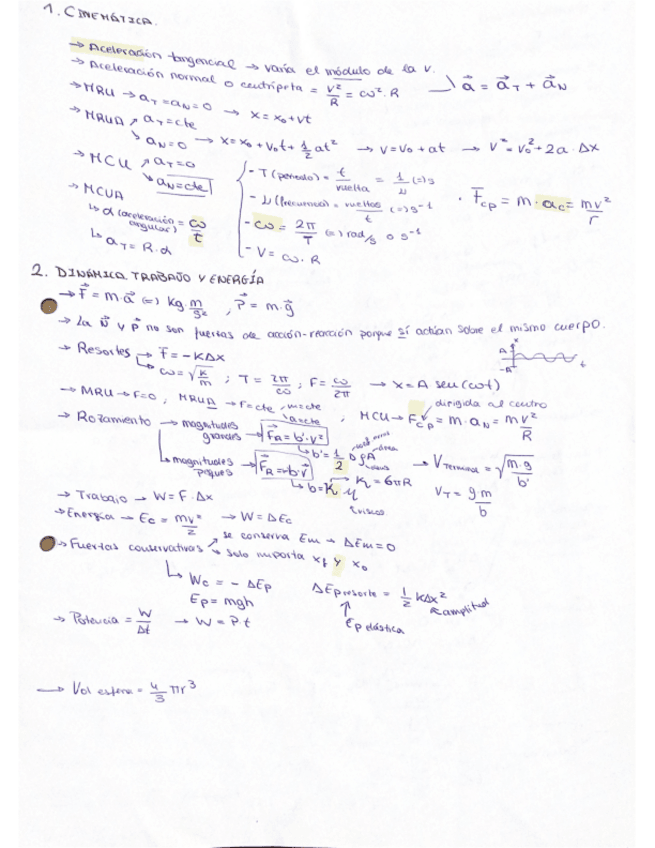 1. CINEMÁTICA.
→ Aceleración tangencial → varía el módulo de la v.
→ Aceleración normal o centrípeta = v²/R = ω²·R     a⃗ = a⃗T + a⃗N
→ MRU → aT = aN = 0 → x = x0 + vt
→ MRUA ↗ aT = cte
↘ aN = 0 → x = x0 + v0t + 1/2 at² → v = v0 + at → v² = v0² + 2a·Δx
→ MCU ↗ aT = 0
↘ aN = cte
- T (periodo) = t/vuelta = 1/ν (=) s
- ν (frecuencia) = vueltas/t (=) s⁻¹
- ω = 2π/T (=) rad/s o s⁻¹
- V = ω·R
· F⃗cp = m·ac = mv²/r
→ MCUA
↳ α (aceleración angular) = ω/t
↳ aT = R·α
2. DINÁMICA, TRABAJO Y ENERGÍA
→ F⃗ = m·a⃗ (=) Kg·m/s², P⃗ = m·g⃗
→ La N⃗ y P⃗ no son fuerzas de acción-reacción porque sí actúan sobre el mismo cuerpo.
→ Resortes → F⃗ = -KΔx
↳ ω = √K/m ; T = 2π/ω ; F = ω/2π → x = A sen(ωt)
A
-A
x
t
→ MRU → F=0, MRUA → F=cte, m=cte
a=cte
, MCU → Fcp = m·aN = mv²/R
dirigida al centro
→ Rozamiento → magnitudes grandes → F⃗R = b'·v²
↳ b' = 1/2 D ρ A
área
↳ magnitudes peques → F⃗R = b·v⃗
↳ b = K η
K = 6πR
→ VTerminal = √m·g/b'
VT = gm/b
→ Trabajo → W = F·Δx
→ Energía → Ec = mv²/2 → W = ΔEc
→ Fuerzas conservativas ↗ se conserva Em → ΔEm = 0
↘ solo importa xf y x0
↳ Wc = - ΔEp
Ep = mgh
ΔEp resorte = 1/2 KΔx²
amplitud
Ep elástica
→ Potencia = W/Δt → W = P·t
→ Vol esfera = 4/3 πr³